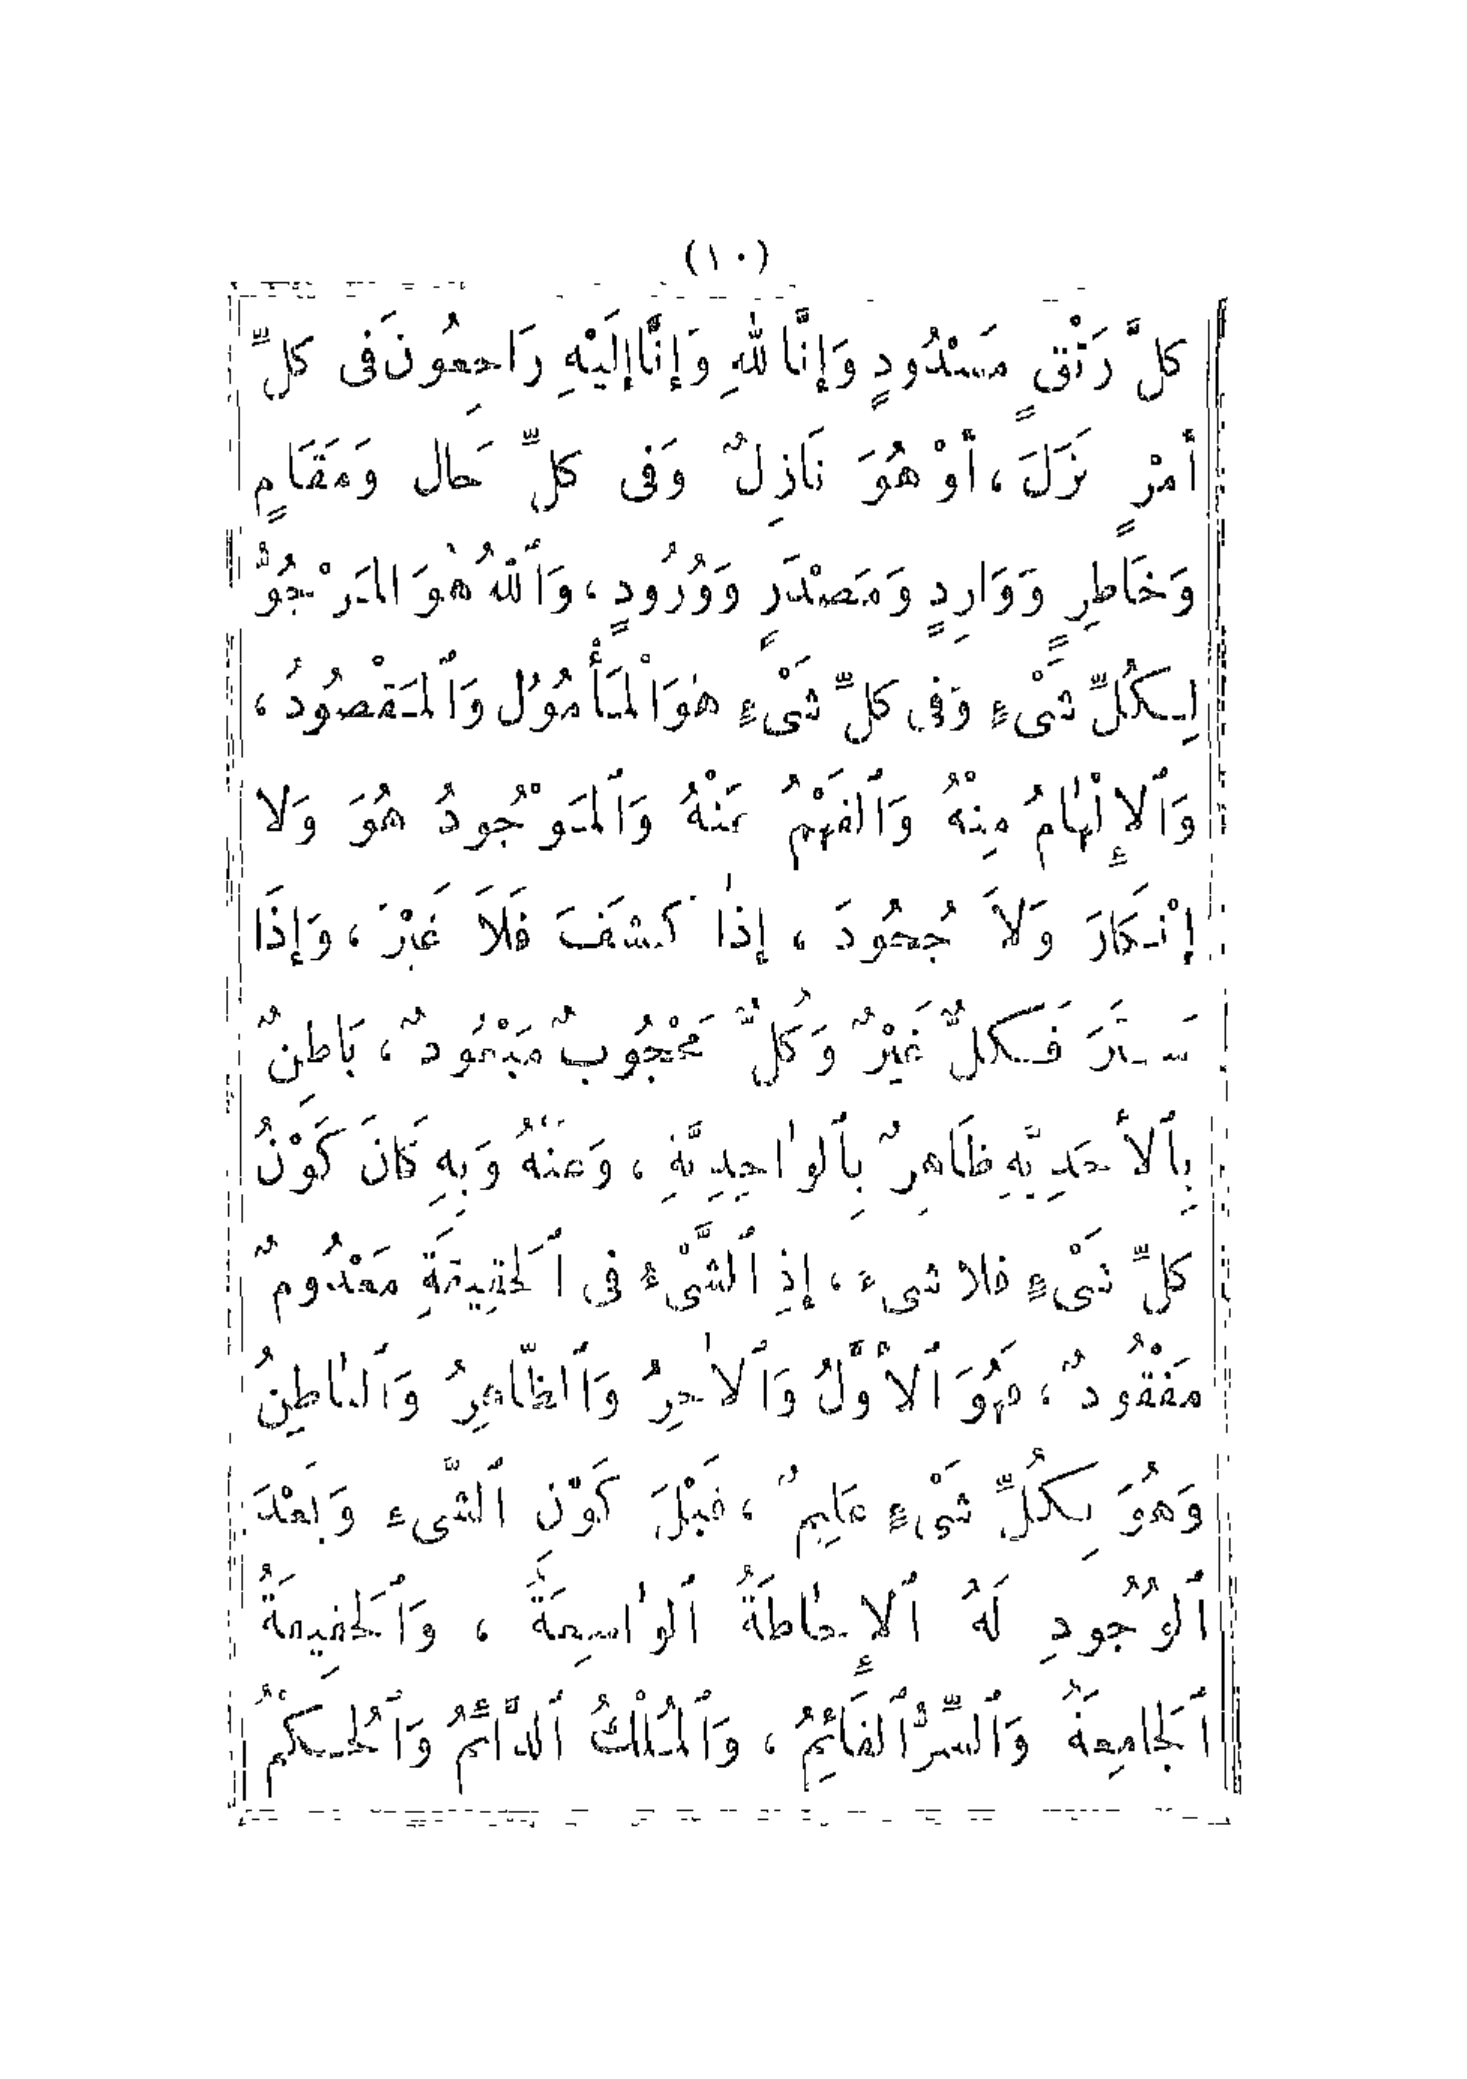 (١٠)
كلَّ رَتْقٍ مَسْدُودٍ وَإِنَّا للهِ وَإِنَّا إِلَيْهِ رَاجِعُونَ فى كلِّ
أمْرٍ نَزَلَ، أوْ هُوَ نَازِلٌ وَفى كلِّ حَال وَمَقَامٍ
وَخَاطِرٍ وَوَارِدٍ وَمَصْدَرٍ وَوُرُودٍ، وَٱللهُ هُوَ المَرْجُوُّ
لِكُلِّ شَىْءٍ وَفى كلِّ شَىْءٍ هُوَ ٱلْمَأْمُولُ وَٱلمَقْصُودُ،
وَٱلإِلْهَامُ مِنْهُ وَٱلفَهْمُ عَنْهُ وَٱلمَوْجُودُ هُوَ وَلا
إنْكَارَ وَلاَ جُحُودَ، إذَا كشَفَ فَلاَ غَيْرَ، وَإذَا
سَتَرَ فَكلٌّ غَيْرٌ وَكُلٌّ مَحْجُوبٌ مَبْعُودٌ، بَاطِنٌ
بِٱلأحَدِيَّةِ ظَاهِرٌ بِٱلوَاحِدِيَّةِ، وَعَنْهُ وَبِهِ كَانَ كَوْنُ
كلِّ شَىْءٍ فلا شىءَ، إذِ ٱلشَّىْءُ فى ٱلحَقِيقَةِ مَعْدُومٌ
مَفْقُودٌ، فَهُوَ ٱلأوَّلُ وَٱلآخِرُ وَٱلظَّاهِرُ وَٱلبَاطِنُ
وَهُوَ بِكُلِّ شَىْءٍ عَلِيمٌ، قَبْلَ كَوْنِ ٱلشَّىءِ وَبَعْدَ
ٱلوُجُودِ لَهُ ٱلإِحَاطَةُ ٱلوَاسِعَةُ، وَٱلحَقِيقَةُ
ٱلجَامِعَةُ وَٱلسِّرُّ ٱلقَائِمُ، وَٱلمُلْكُ ٱلدَّائِمُ وَٱلحُكْمُ